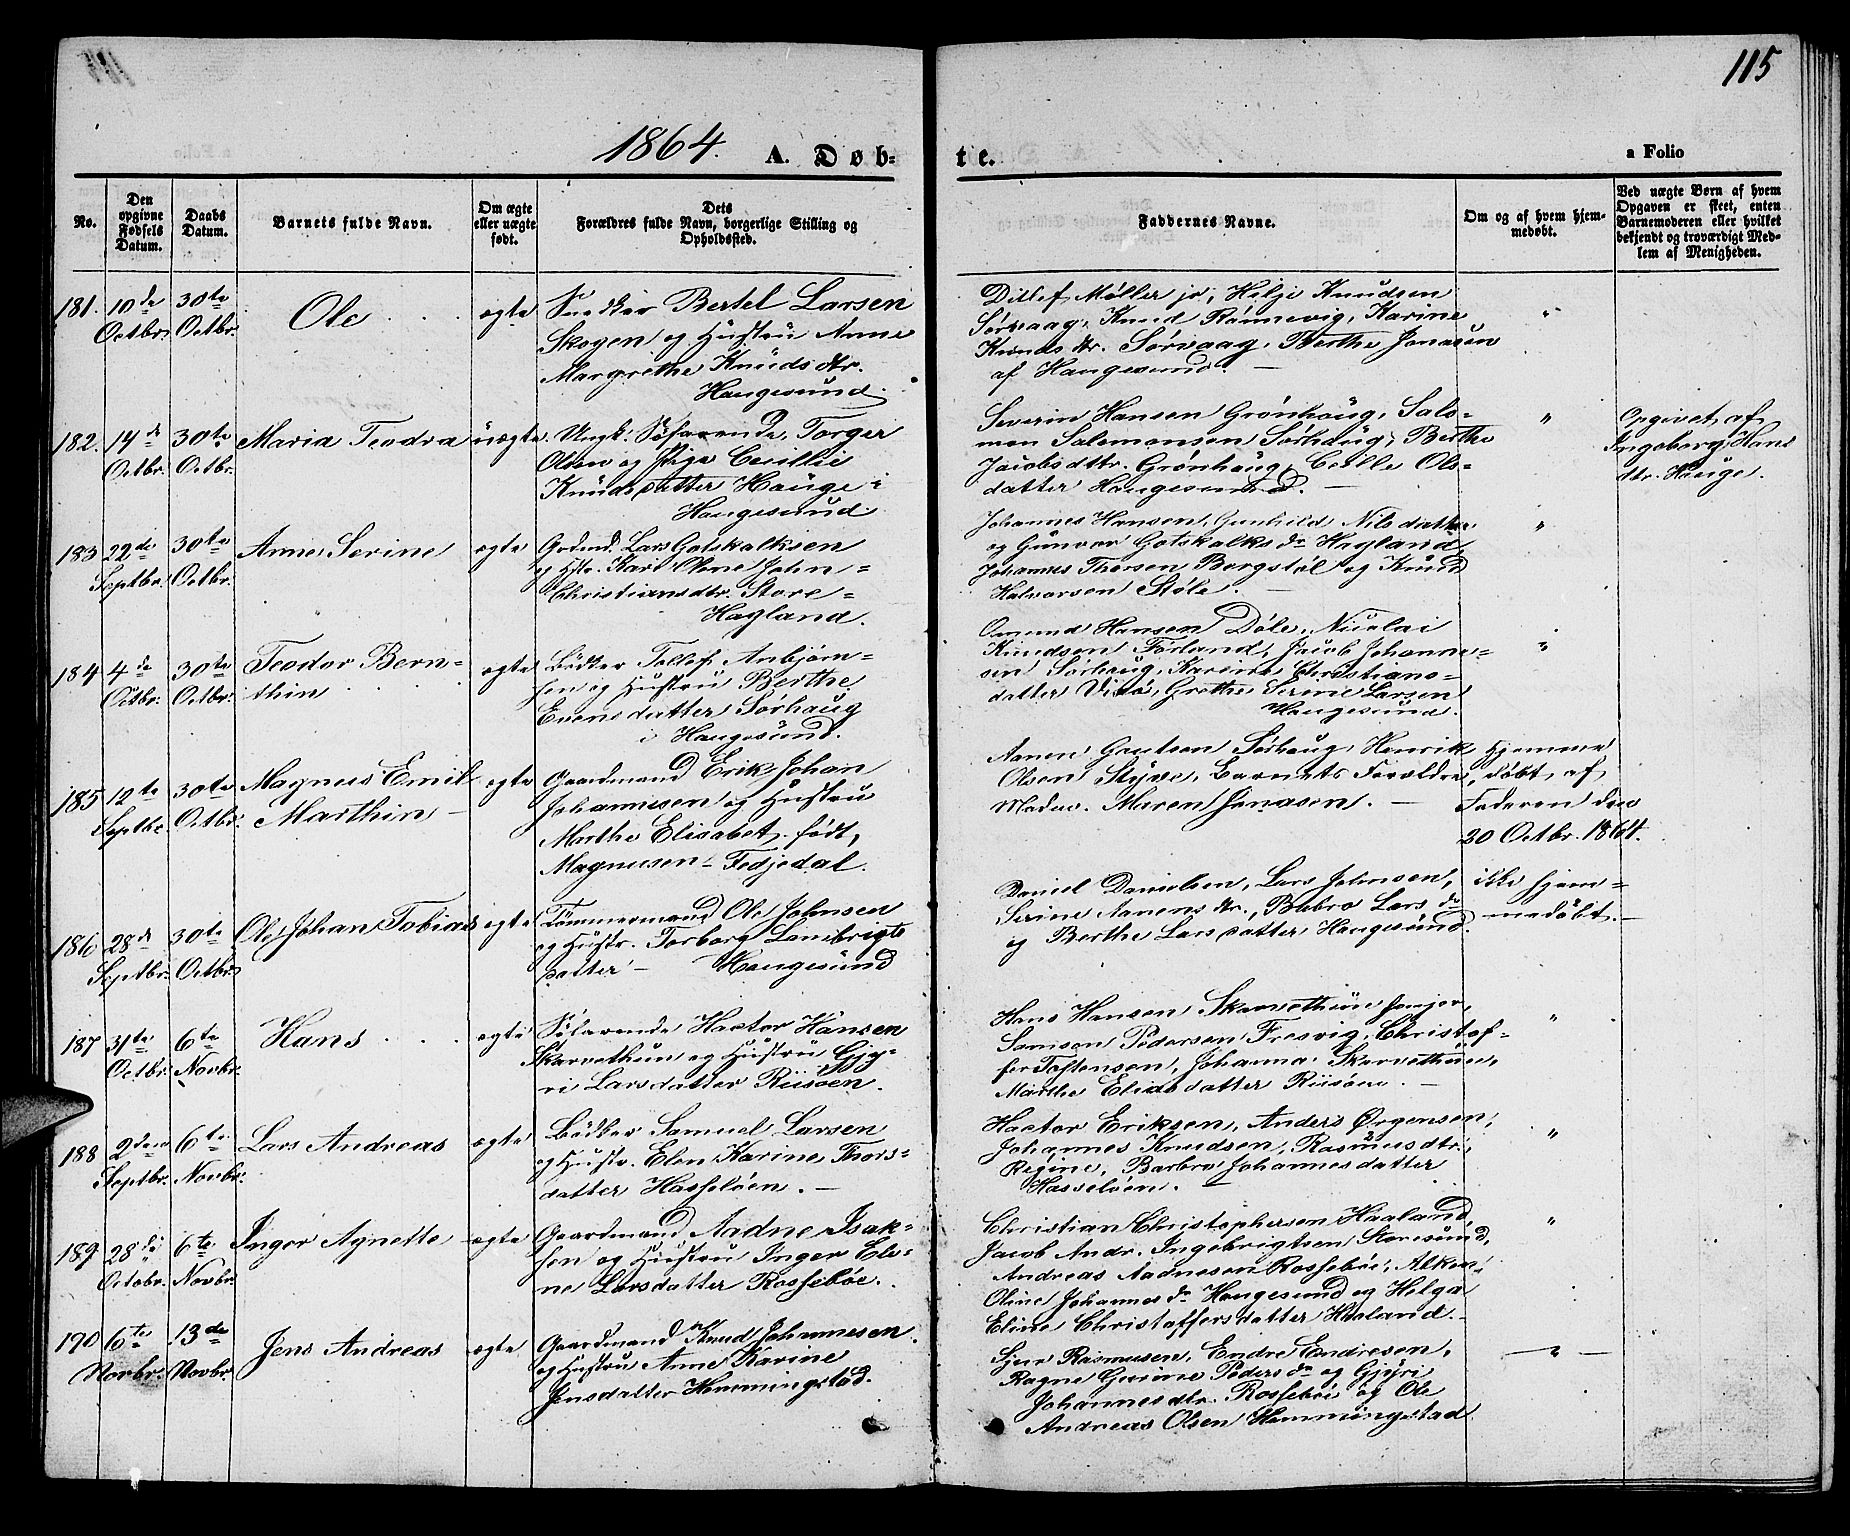 115
1864. A. Døb-
te.
a Folio
No.
Den
opgivne
Fødsels
Datum.
Daabs
Datum.
Barnets fulde Navn.
Om ægte
eller uægte
født.
Dets
Forældres fulde Navn, borgerlige Stilling og
Opholdssted.
Faddernes Navne.
Om og af hvem hjem-
medøbt.
Ved uægte Børn af hvem
Opgaven er skeet, enten
Barnemoderen eller hvilket
bekjendt og troværdigt Med-
lem af Menigheden.
181. 10de
Octbr.
30te
Octbr.
Ole
ægte
Snedker Bertel Larsen
Skogen og Hustru Anne
Margrethe Knudsdtr.
Haugesund.
Ditlef Møller jr, Helje Knudsen
Sørvaag, Knud Rønnevig, Karine
Knudsdtr. Sørvaag, Berthe Jonasen
af Haugesund. —
"
182. 14de
Octbr.
30te
Octbr.
Maria Teodra
uægte
Ungk. Søfarende Torger
Olsen og Pige Cecillie
Knudsdatter Hauge i
Haugesund
Severin Hansen Grønhaug, Salo-
mon Salomonsen Sørhaug, Berthe
Jacobsdttr. Grønhaug, Cecille Ols-
datter Haugesund. —
"
Opgivet af
Ingeborg Hans
dtr. Hauge.
183 22de
Septbr.
30te
Octbr.
Anne Serine
ægte
Grdmd. Lars Gotskalksen
og Hstr. Kari Olene John-
Christiansdtr. Store-
Hagland.
Johannes Hansen, Gunhild Nilsdatter
og Gunvor Gotskalksdr Hagland,
Johannes Thorsen Borgstøl og Knud
Halvorsen Støle. —
"
184 4de
Octbr.
30te
Octbr.
Teodor Bern-
thin
ægte
Bødker Tollef Anbjørn-
sen og Hustru Berthe
Evensdatter Sørhaug
i Haugesund.
Omund Hansen Døle, Nicolai
Knudsen Førland, Jacob Johanne-
sen Sørhaug, Karine Christians-
datter Grethe Serine Larsen
Haugesund.
"
185 12te
Septbr
30te
Octbr.
Magnus Emil
Marthin —
ægte
Gaardmand Erik Johan
Johannesen og Hustru
Marthe Elisabet født
Magnusen - Fedjedal.
Aanen Gautsen Sørhaug, Henrik
Olsen Styve, Barnets Forældre,
Madm. Maren Jonasen. —
Hjemme
døbt af
Faderen den
20 Octbr. 1864.
186 28de
Septbr.
30te
Octbr.
Ole Johan Tobias
ægte
Tømmermand Ole Johnsen
og Hustr. Torborg Lambrigts
datter — Haugesund
Daniel Danielsen, Lars Johnsen,
Serine Aanensdtr., Babro Larsdr
og Berthe Larsdatter Haugesund.
ikke hjem-
medøbt. —
187 31te
Octbr.
6te
Novbr.
Hans
ægte
Søfarende Hactor Hansen
Skarvethun og Hustru Gjy-
ri Larsdatter Riisøen.
Hans Hansen Skarvethun senjor,
Samson Pedersen Fresvig, Christof-
fer Toftensen, Johanna Skarvethun,
Marthe Eliasdatter Riisøen. —
"
188 2den
Septbr.
6te
Novbr.
Lars Andreas
ægte
Bødker Samuel Larsen
og Hustr. Elen Karine Thors-
datter Hasseløen. —
Hactor Eriksen, Anders Ørgensen,
Johannes Knudsen, Rasmusdtr.,
Regine, Barbro Johannesdatter
Hasseløen. —
"
189 28de
Octobr.
6te
Novbr.
Inger Agnette
ægte
Gaardmand Aadne Isak-
sen og Hustru Inger Ele-
ne Larsdatter Rossebøe.
Christian Christophersen Haaland,
Jacob Andr. Ingebrigtsen Storesund,
Andreas Aadnesen Rossebøe, Alken
Oline Johannesdr Haugesund og Helga
Eline Christaffersdatter Haaland. —
"
190 6te
Novbr.
13de
Novbr.
Jens Andreas
ægte
Gaardmand Knud Johannesen
og Hustru Anne Karine
Jensdatter Hemmingstad.
Sjur Rasmusen, Endre Endresen,
Ragne Gurine Pedersdr og Gjyri
Johannesdtr. Rossebøe og Ole
Andreas Olsen Hemmingstad.
— " —